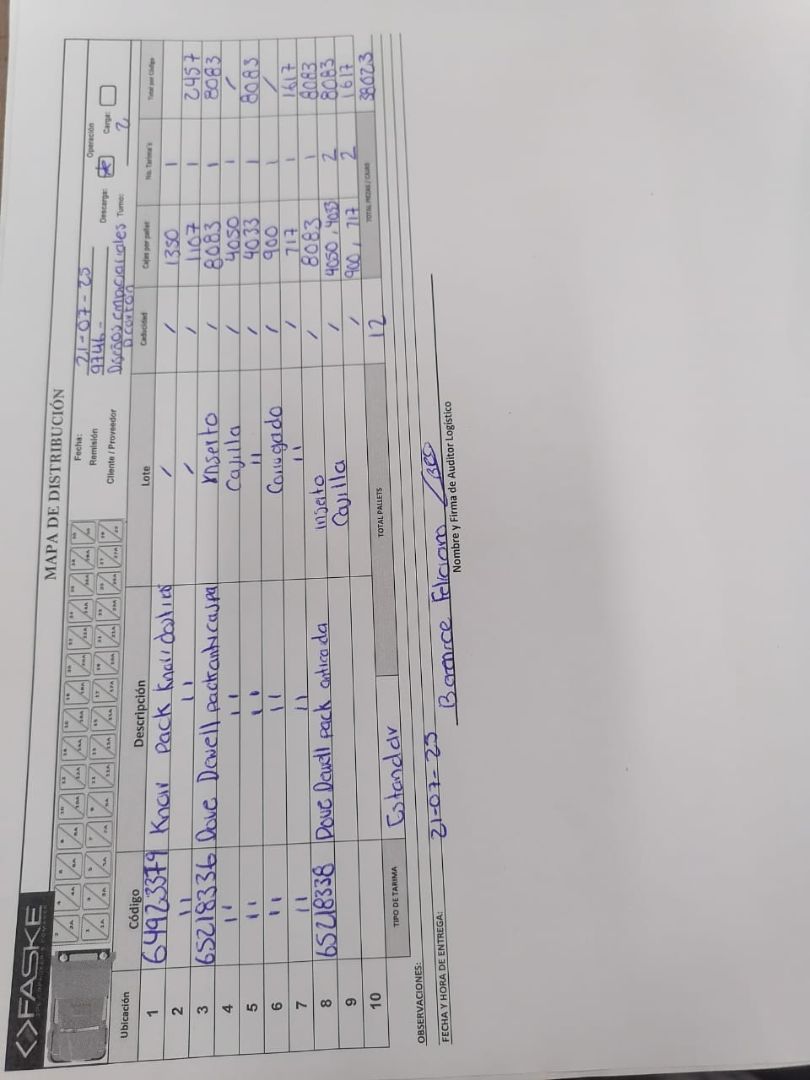 FASKE
MAPA DE DISTRIBUCIÓN
Fecha: 21-07-25
Operación
Remisión 9746-
Descarga: Carga:
Cliente / Proveedor Diseños empresariales Turno: 2
D carton
Ubicación Código Descripción Lote Caducidad Cajas por pallet No. Tarima's Total por Código
1 64923379 Knorr pack Knorr / / 1350 1
2 " " / / 1107 1 2457
3 65218336 Dove Dowell pack anticaspa Inserto / 8083 1 8083
4 " " Cajilla / 4050 1 /
5 " " " / 4033 1 8083
6 " " Corrugado / 900 1 /
7 " " " / 717 1 1617
8 65218338 Dove Dowell pack anticaida Inserto / 8083 1 8083
9 Cajilla / 4050, 4033 2 8083
10 / 900, 717 2 1617
TIPO DE TARIMA Estandar TOTAL PALLETS 12 TOTAL PIEZAS / CAJAS 38023
OBSERVACIONES:
FECHA Y HORA DE ENTREGA: 21-07-25 Berenice Feliciano
Nombre y Firma de Auditor Logístico